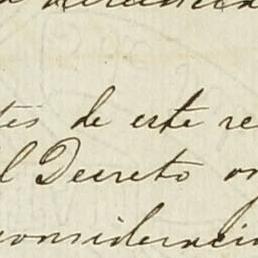 tes de este re
l Decreto or
consideracio